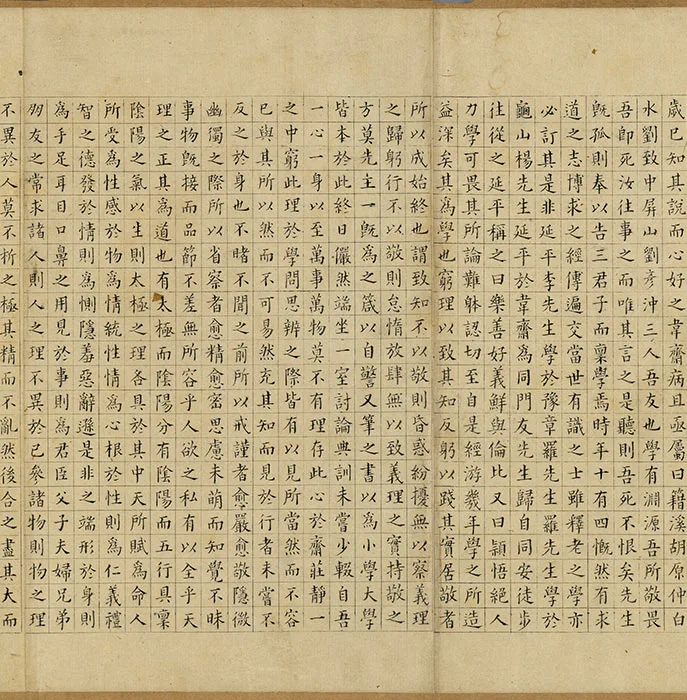 歲已知其說而心好之韋齋病且亟屬曰籍溪胡原仲白
水劉致中屏山劉彥沖三人吾友也學有淵源吾所敬畏
吾卽死汝往事之而唯其言之是聽則吾死不恨矣先生
旣孤則奉以告三君子而稟學焉時年十有四慨然有求
道之志博求之經傳遍交當世有識之士雖釋老之學亦
必訂其是非延平李先生學於豫章羅先生羅先生學於
龜山楊先生延平於韋齋為同門友先生歸自同安徒步
往從之延平稱之曰樂善好義鮮與倫比又曰頴悟絕人
力學可畏其所論難躰認切至自是經游幾年學之所造
益深矣其為學也窮理以致其知反躬以踐其實居敬者
所以成始終也謂致知不以敬則昏惑紛擾無以察義理
之歸躬行不以敬則怠惰放肆無以致義理之實持敬之
方莫先主一旣為之箴以自警又筆之書以為小學大學
皆本於此終日儼然端坐一室討論典訓未嘗少輟自吾
一心一身以至萬事萬物莫不有理存此心於齋莊靜一
之中窮此理於學問思辨之際皆有以見所當然而不容
已與其所以然而不可易然充其知而見於行者未嘗不
反之於身也不睹不聞之前所以戒謹者愈嚴愈敬隱微
幽獨之際所以省察者愈精愈密思慮未萌而知覺不昧
事物旣接而品節不差無所容乎人欲之私有以全乎天
理之正其為道也有太極而陰陽分有陰陽而五行具稟
陰陽之氣以生則太極之理各具於其中天所賦為命人
所受為性感於物為情統性情為心根於性則為仁義禮
智之德發於情則為惻隱羞惡辭遜是非之端形於身則
為手足耳目口鼻之用見於事則為君臣父子夫婦兄弟
朋友之常求諸人則人之理不異於已參諸物則物之理
不異於人莫不析之極其精而不亂然後合之盡其大而